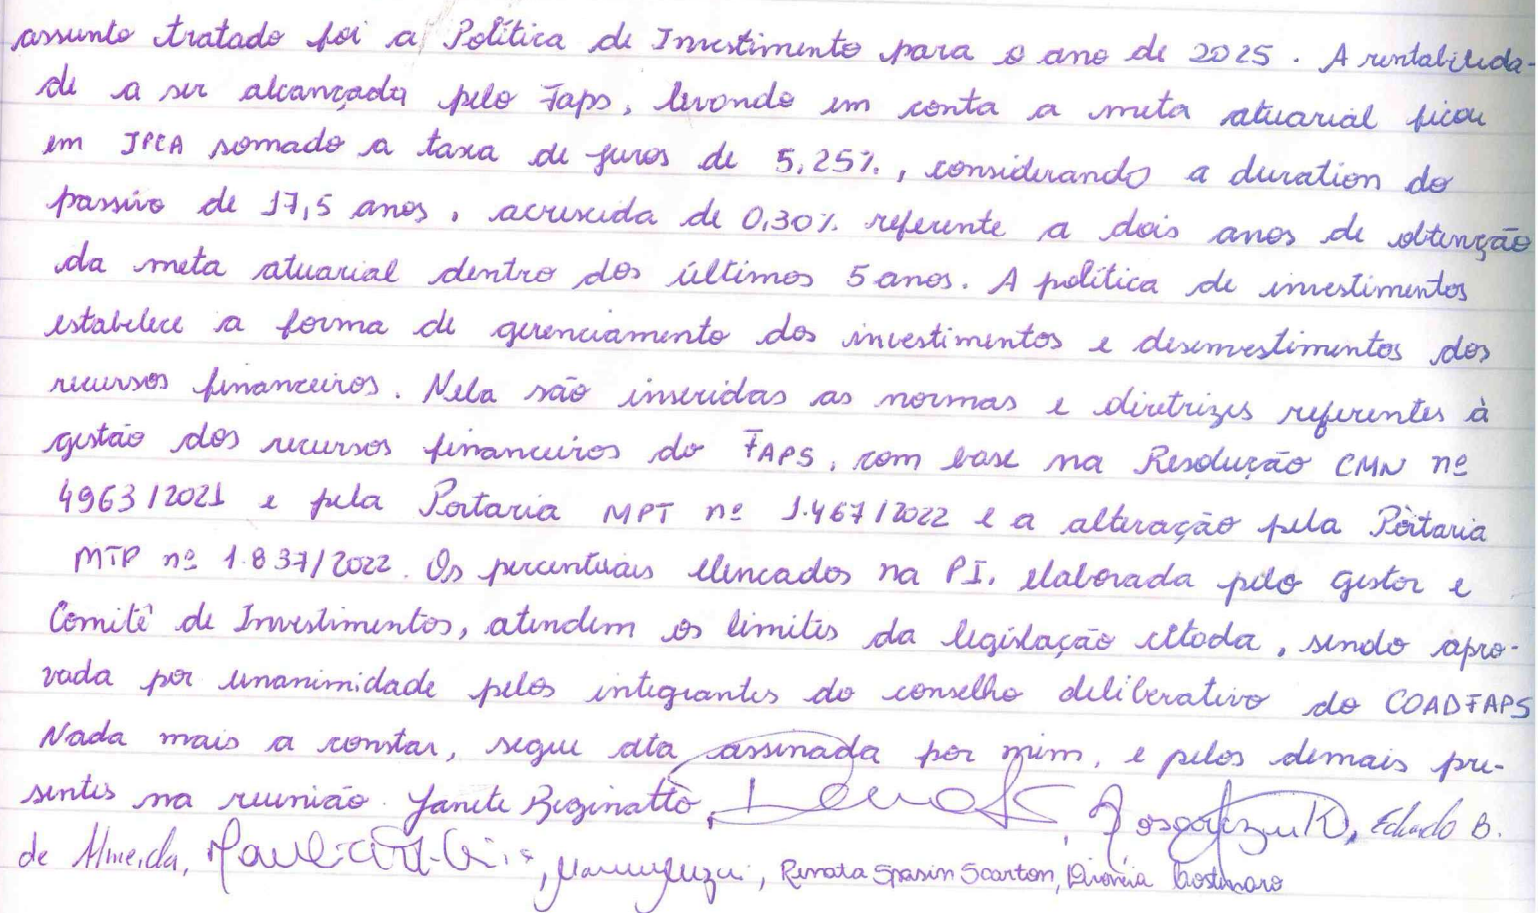 assunto tratado foi a Política de Investimento para o ano de 2025. A rentabilida-
de a ser alcançada pelo Faps, levando em conta a meta atuarial ficou
em IPCA somado a taxa de juros de 5,25%, considerando a duration do
passivo de 17,5 anos, acrescida de 0,30% referente a dois anos de obtenção
da meta atuarial dentro dos últimos 5 anos. A política de investimentos
estabelece a forma de gerenciamento dos investimentos e desinvestimentos dos
recursos financeiros. Nela são inseridas as normas e diretrizes referentes à
gestão dos recursos financeiros do FAPS, com base na Resolução CMN nº
4963/2021 e pela Portaria MPT nº 1.467/2022 e a alteração pela Portaria
MTP nº 1.837/2022. Os percentuais elencados na PI, elaborada pelo gestor e
Comitê de Investimentos, atendem os limites da legislação citada, sendo apro-
vada por unanimidade pelos integrantes do conselho deliberativo do COADFAPS
Nada mais a constar, segue ata assinada por mim, e pelos demais pre-
sentes na reunião. Janete Beginatto, Eduardo B.
de Almeida, Renata Spasin Scarton,